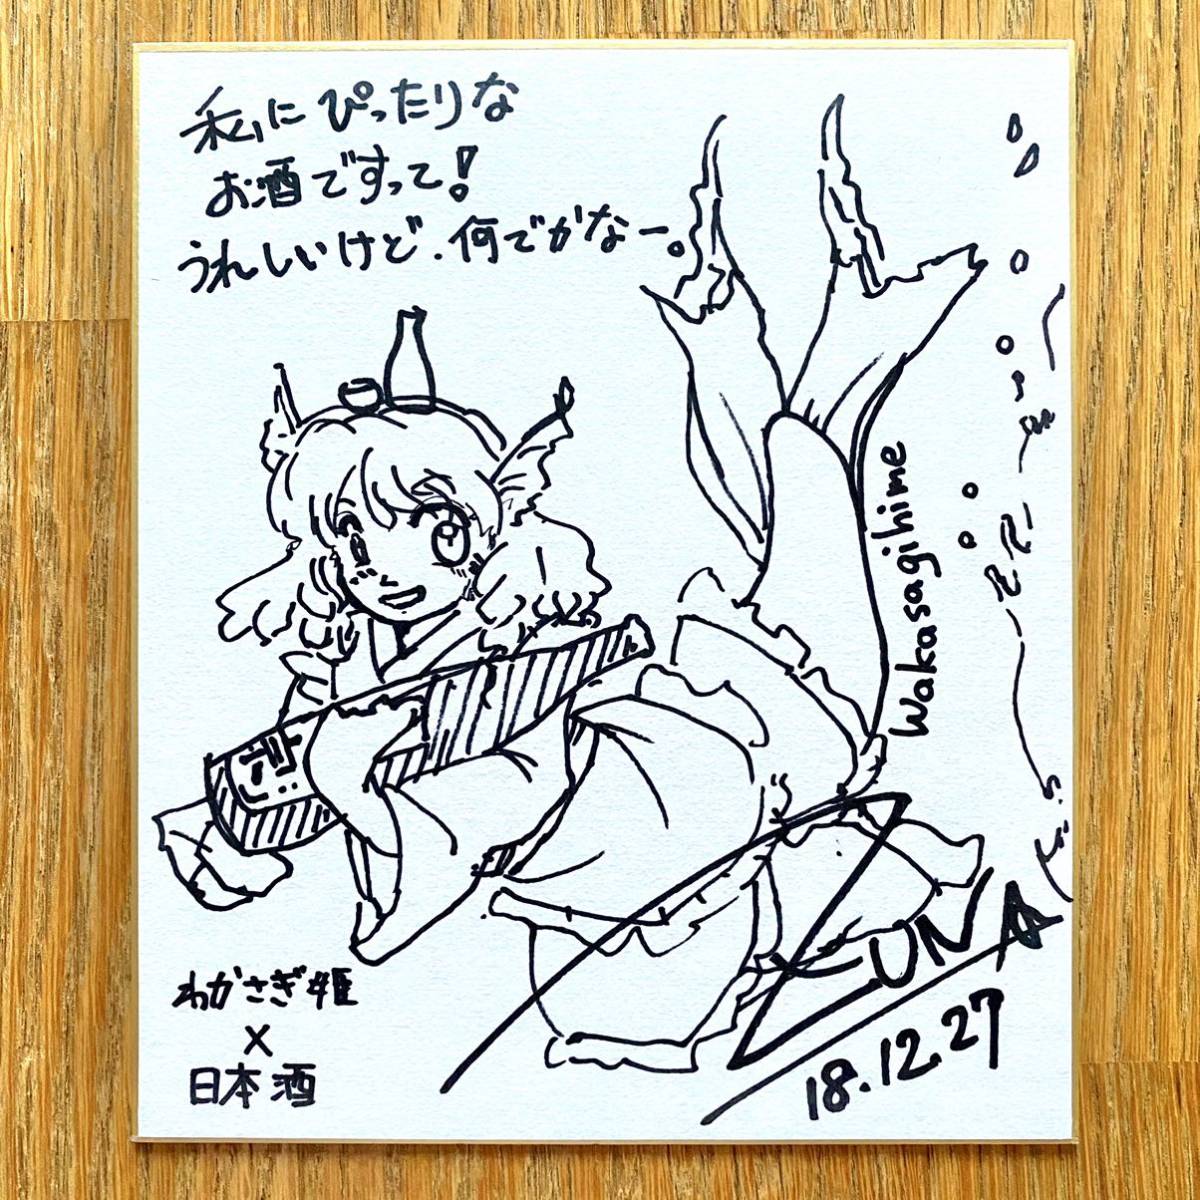 私にぴったりな
お酒ですって!
うれしいけど.何でかなー。
Wakasagihime
わかさぎ姫
×
日本酒
LUNA
18.12.27